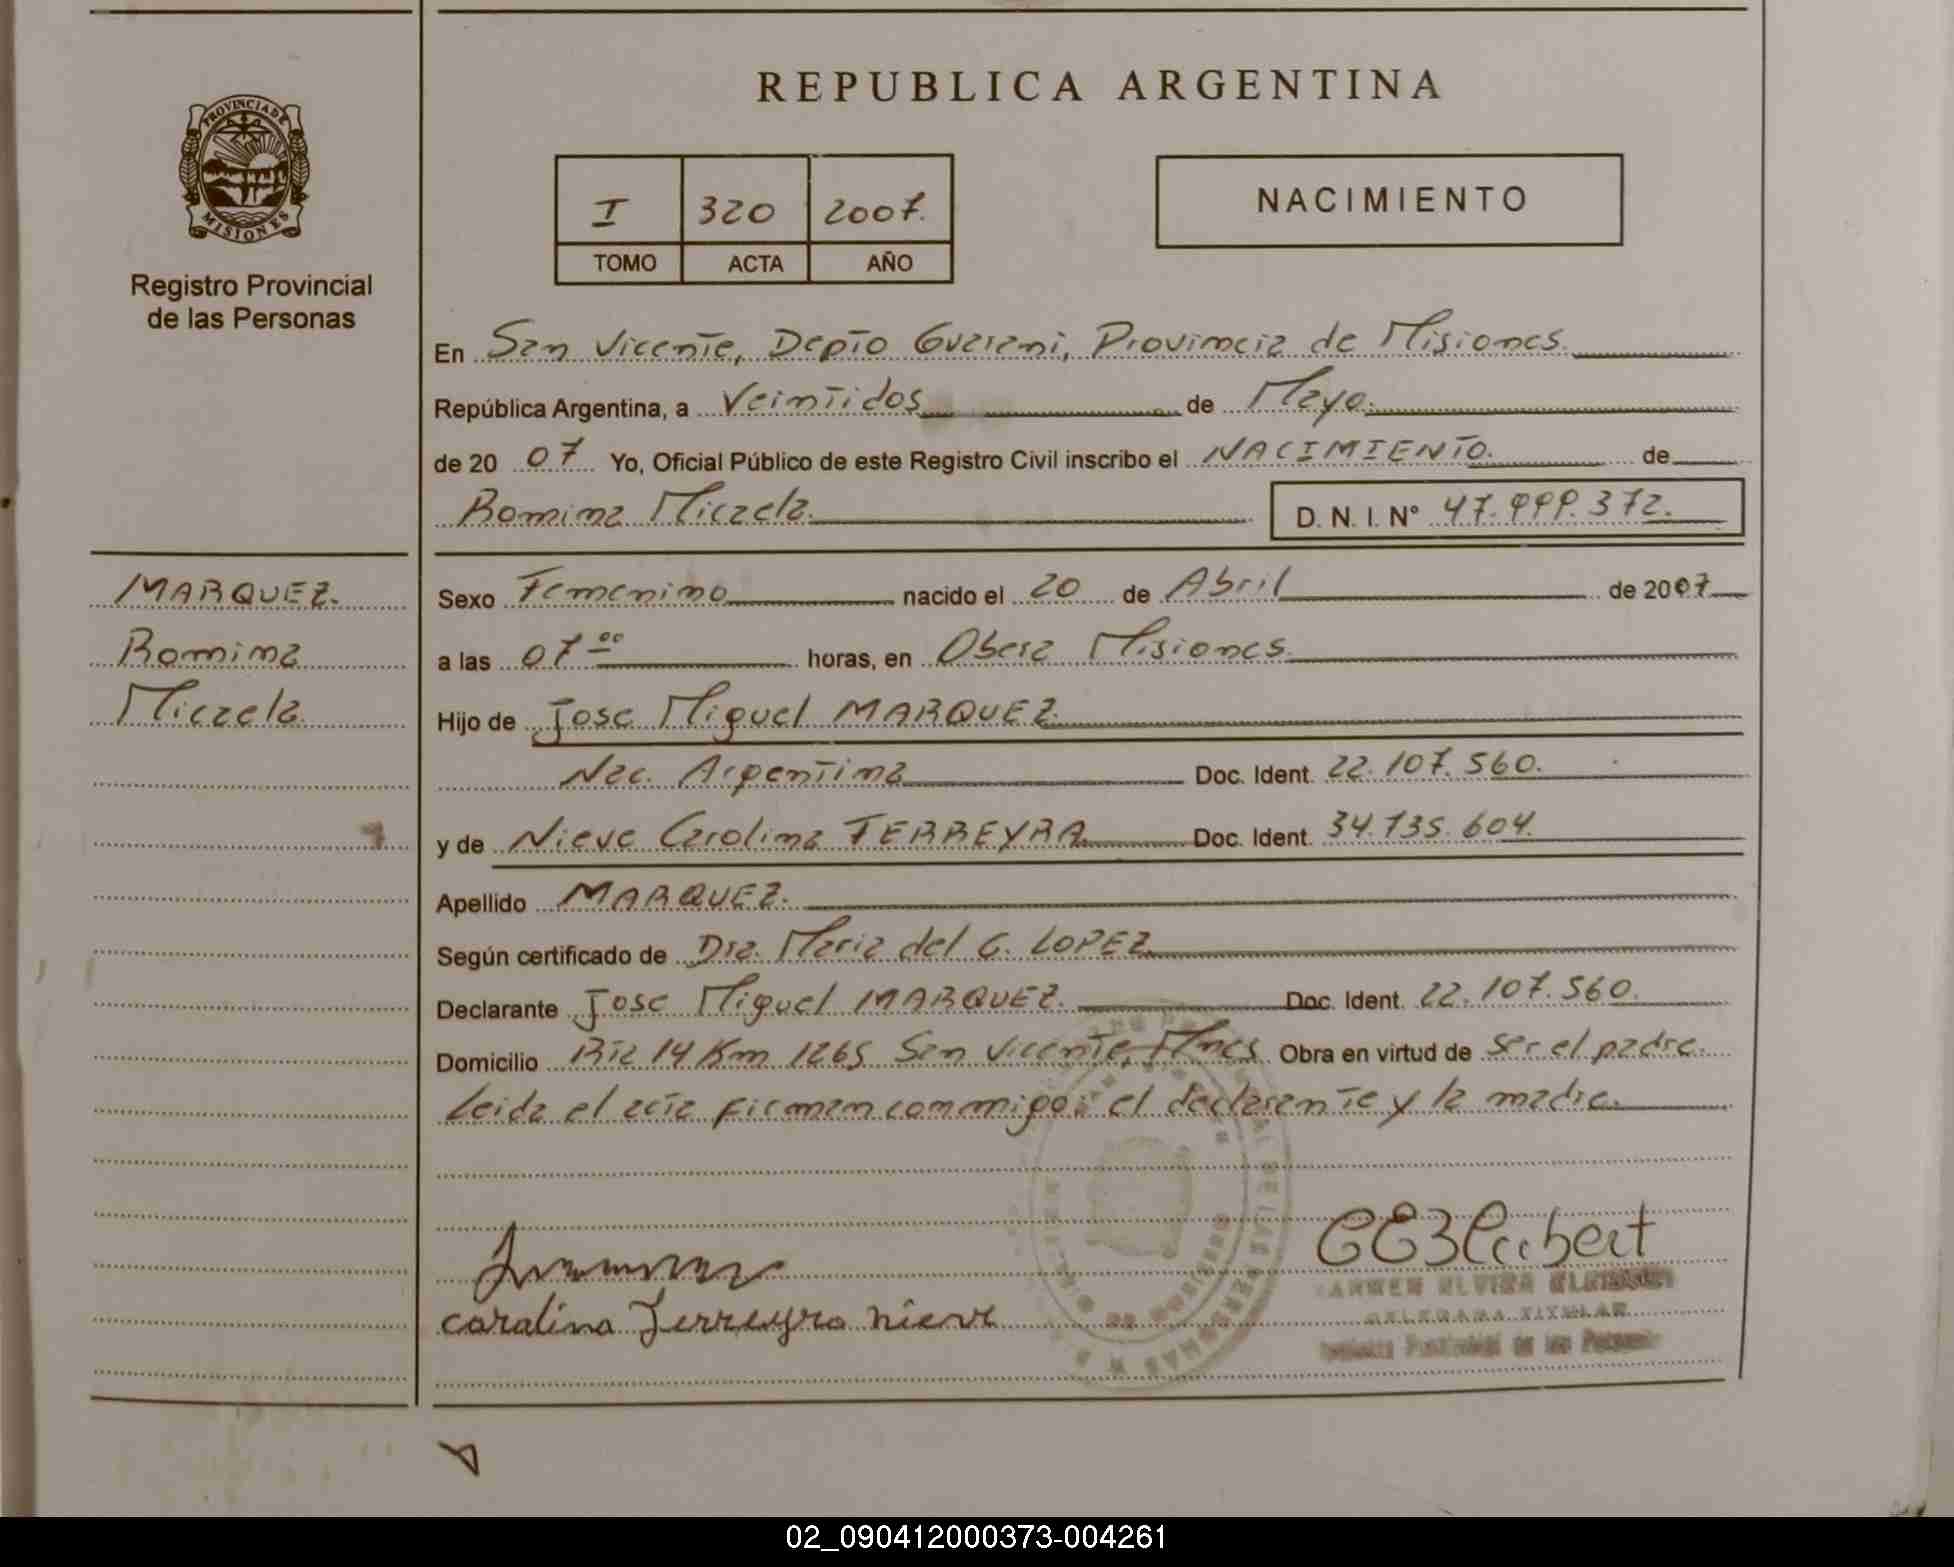 REPUBLICA ARGENTINA
PROVINCIA DE MISIONES
Registro Provincial
de las Personas
I 320 2007.
TOMO ACTA AÑO
NACIMIENTO
En San Vicente, Depto Guarani, Provincia de Misiones.
República Argentina, a Veintidos de Mayo.
de 20 07 Yo, Oficial Público de este Registro Civil inscribo el NACIMIENTO. de
Romina Micaela. D. N. I. Nº 47.999.372.
MARQUEZ.
Romina
Micaela
Sexo Femenino nacido el 20 de Abril de 2007
a las 07 00 horas, en Obera Misiones.
Hijo de Jose Miguel MARQUEZ.
Nac. Argentina Doc. Ident. 22.107.560.
y de Nieve Carolina FERREYRA Doc. Ident. 34.735.604.
Apellido MARQUEZ.
Según certificado de Dra. Maria del G. LOPEZ
Declarante Jose Miguel MARQUEZ. Doc. Ident. 22.107.560.
Domicilio Rta 14 Km 1265 San Vicente, Mnes Obra en virtud de ser el padre.
Leida el acta firman conmigo: el declarante y la madre.
carolina Ferreyra nieve
DELEGADA TITULAR
Registro Provincial de las Personas
02_090412000373-004261